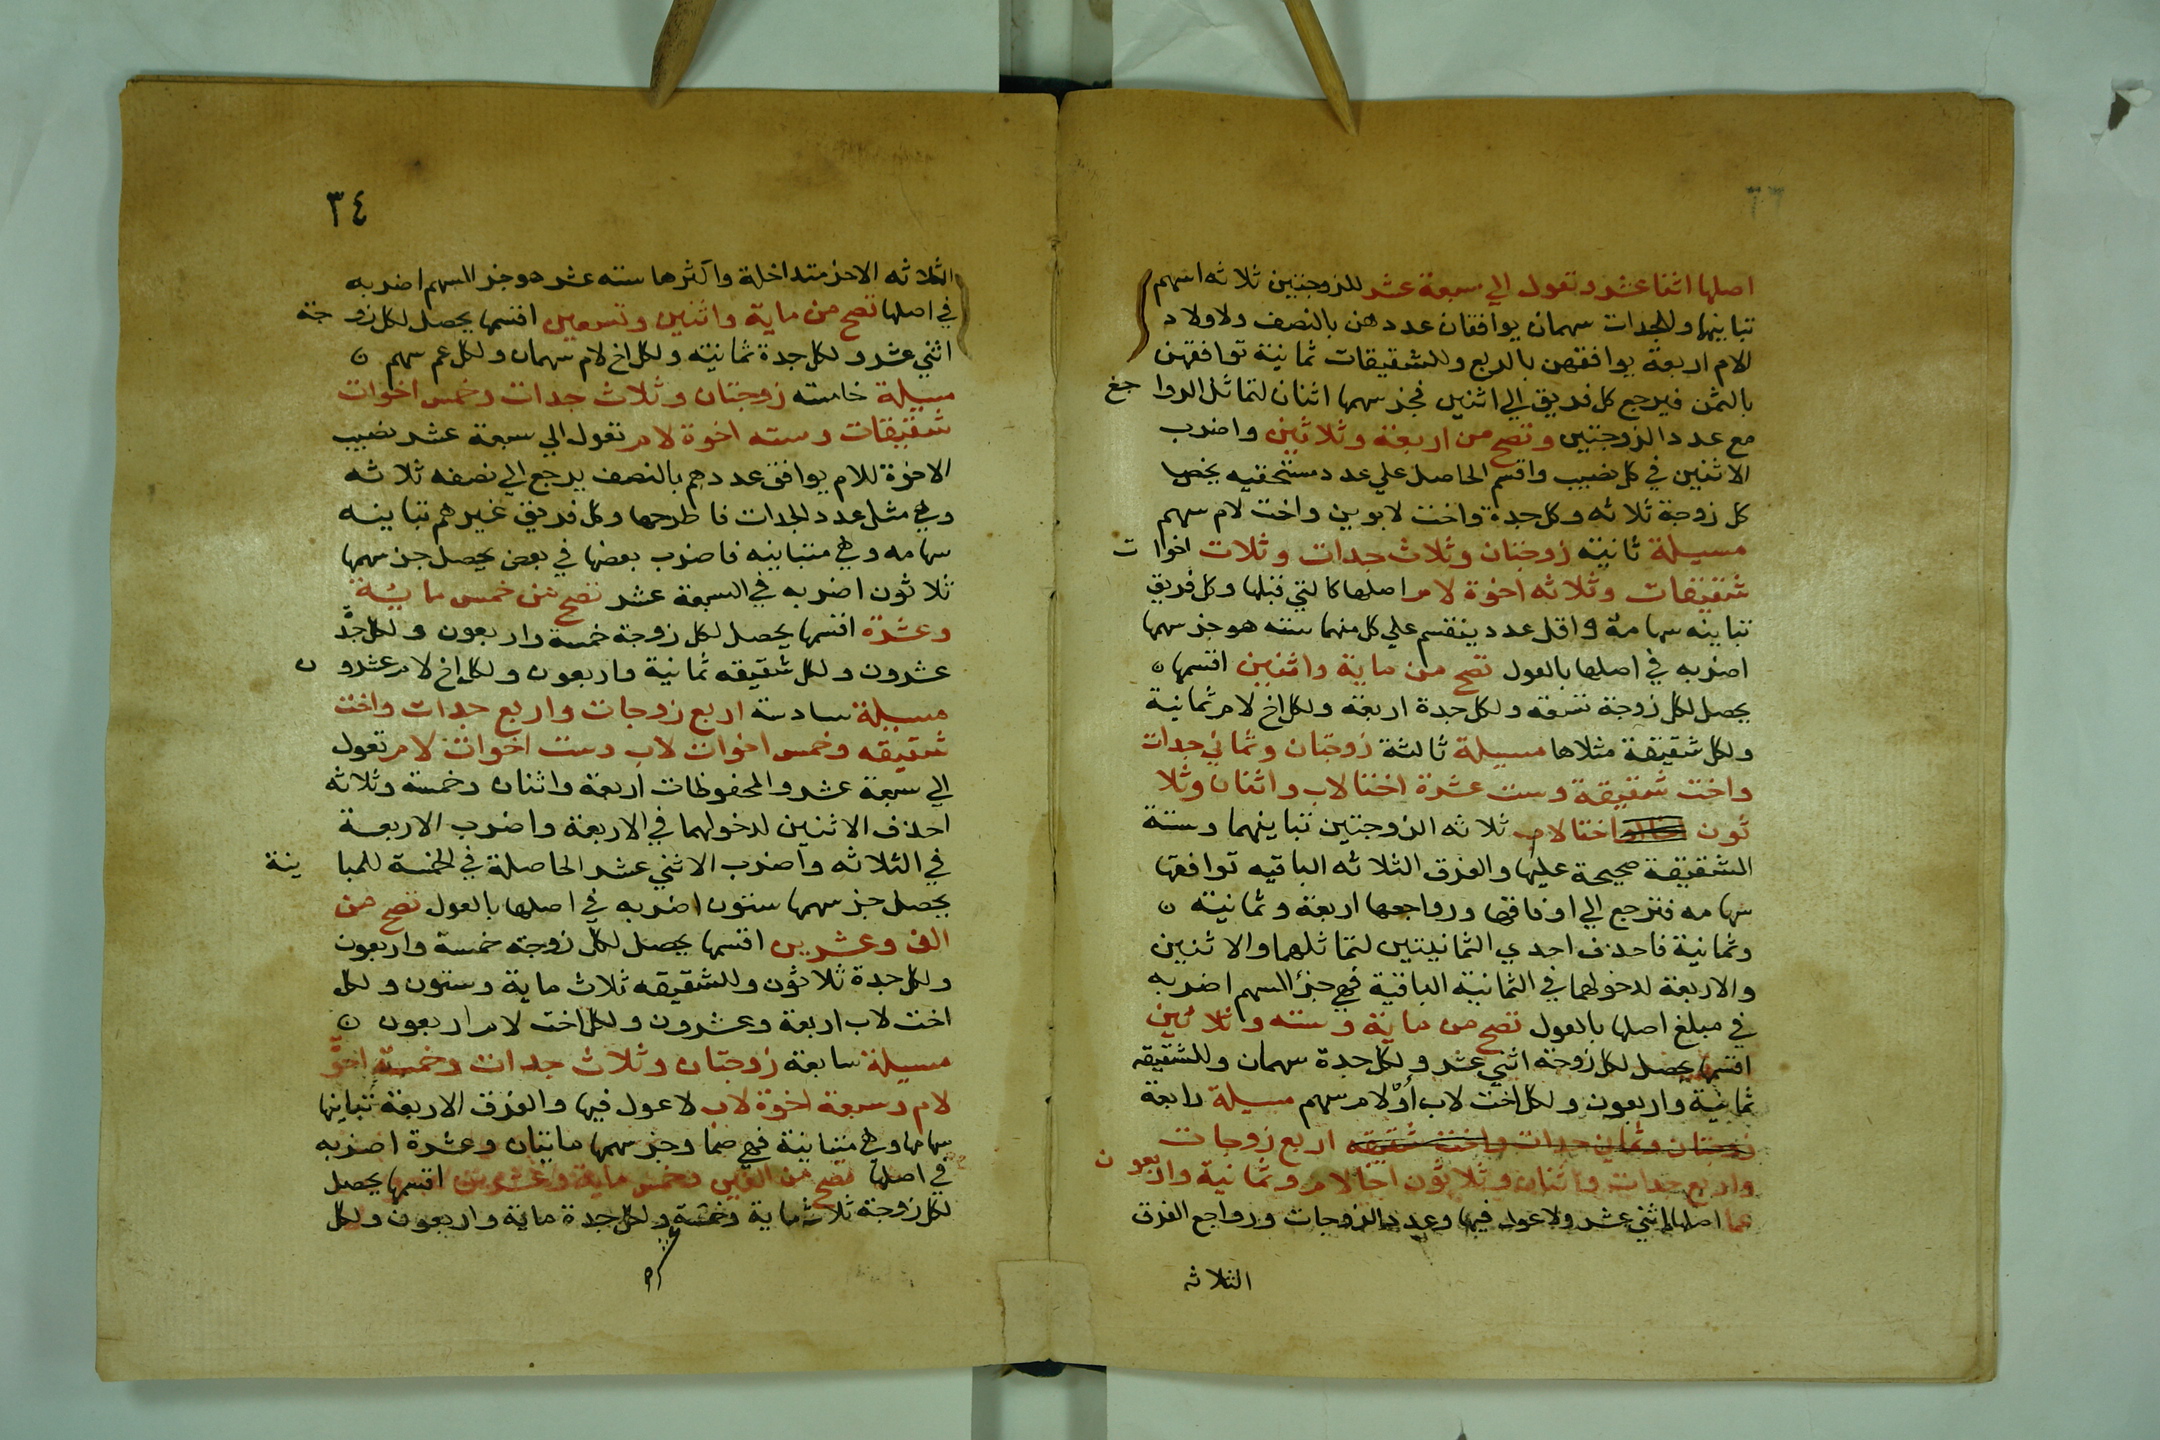 اصلها اثنا عشر وتعول الي سبعة عشر للزوجتين ثلاثه اسهم
تباينهما وللجدات سهمان يوافقان عددهن بالنصف ولاولاد
الام اربعة يوافقهن بالربع وللشقيقات ثمانية توافقهن
بالثمن فيرجع كل فريق الي اثنين فجز سهمها اثنان لتماثل الرواجع
مع عدد الزوجتين وتصح من اربعة وثلاثين واضرب
الاثنين في كل نصيب واقسم الحاصل علي عدد مستحقيه يخص
كل زوجة ثلاثه وكل جدة واخت لابوين واخت لام سهم
مسيلة ثانية زوجتان وثلاث جدات وثلات اخوات
شقيقات وثلاثه اخوة لام اصلها كالتي قبلها وكل فريق
تباينه سهامه واقل عدد ينقسم علي كل منهما سته هو جز سهمها
اضربه في اصلها بالعول تصح من ماية واثنين اقسمها ن
يحصل لكل زوجة تسعة ولكل جدة اربعة ولكل اخ لام ثمانية
ولكل شقيقة مثلاها مسيلة ثالثة زوجتان وثماني جدات
واخت شقيقة وست عشرة اختا لاب واثنان وثلا
ثون اختا لام ثلاثه الزوجتين تباينهما وستة
الشقيقة صحيحة عليها والفرق الثلاثه الباقيه توافقها
سهامه فترجع الي اوفاقها ورواجعها اربعة وثمانية ن
وثمانية فاحذف احدي الثمانيتين لتماثلهما والاثنين
والاربعة لدخولهما في الثمانية الباقية فهي جز السهم اضربه
في مبلغ اصلها بالعول تصح من ماية وسته وثلاثين
اقسمها يحصل لكل زوجة اثني عشر ولكل جدة سهمان وللشقيقه
ثمانية واربعون ولكل اخت لاب او لام سهم مسيلة رابعة
زوجتان وثمان جدات واخت شقيقه اربع زوجات
واربع جدات واثنان وثلاثون اخا لام وثمانية واربعون
عما اصلها اثني عشر ولا عول فيها وعدد الزوجات ورواجع الفرق
الثلاثه
٣٤
الثلاثه الاخر متداخلة واكثرها سته عشر هو جز السهم اضربه
في اصلها تصح من ماية واثنين وتسعين اقسمها يحصل لكل زوجة
اثني عشر ولكل جدة ثمانيته ولكل اخ لام سهمان ولكل عم سهم ن
مسيلة خامسته زوجتان وثلاث جدات وخمس اخوات
شقيقات وسته اخوة لام تعول الي سبعة عشر نصيب
الاخوة للام يوافق عددهم بالنصف يرجع الي نصفه ثلاثه
وهي مثل عدد الجدات فاطرحها وكل فريق غيرهم تباينه
سهامه وهي متباينه فاضرب بعضها في بعض يحصل جز سهمها
ثلاثون اضربه في السبعة عشر تصح من خمس ماية
وعشرة اقسمها يحصل لكل زوجة خمسة واربعون ولكل جدة
عشرون ولكل شقيقه ثمانية واربعون ولكل اخ لام عشرون
مسيلة سادسة اربع زوجات واربع جدات واخت
شقيقه وخمس اخوات لاب وست اخوات لام تعول
الي سبعة عشر والمحفوظات اربعة واثنان وخمسة وثلاثه
احذف الاثنين لدخولهما في الاربعة واضرب الاربعة
في الثلاثه واضرب الاثني عشر الحاصلة في الخمسة للمباينة
يحصل جز سهمها ستون اضربه في اصلها بالعول تصح من
الف وعشرين اقسمها يحصل لكل زوجة خمسة واربعون
ولكل جدة ثلاثون وللشقيقه ثلاث ماية وستون ولكل
اخت لاب اربعة وعشرون ولكل اخت لام اربعون ن
مسيلة سابعة زوجتان وثلاث جدات وخمسة اخوة
لام وسبعة اخوة لاب لا عول فيها والفرق الاربعة تباينها
سهامها وهي متباينة فهي صما وجز سهمها مايتان وعشرة اضربه
في اصلها تصح من الفين وخمس ماية وعشرين اقسمها يحصل
لكل زوجة ثلاث ماية وخمسة ولكل جدة ماية واربعون ولكل